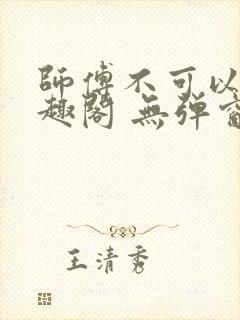 師傅不可以
趣閣 無彈窗
王清秀